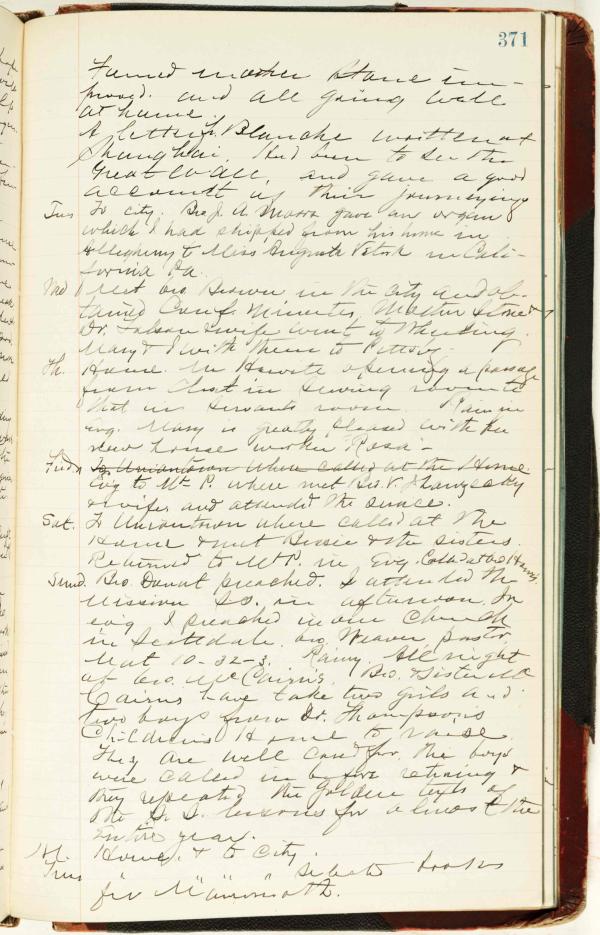 371
Found mother Stone im-
proved. and all going well
at home.
A letter fr. Blanche written at
Shanghai. Had been to see the
Great Wall, and gave a good
account of their journeyings
Tues To city. Bro. J. A. Morra gave an organ
which I had shipped from his home in
Allegheny to Miss Augusta Stork in Cali-
fornia Pa.
Wed Met Bro. Brown in the city and ob-
tained Conf. Minutes, Mother Stone &
Dr. Folsom & wife went to Wheeling.
Mary & I with them to Pittsg.
Th. Home. Mr Haworth opening a passage
from closet in sewing room to
that in servants room. Rain in
evg. Mary is greatly pleased with the
new house worker "Rosa" -
Frid. To Uniontown where called at the Home
Evg to Mt. P. where met Bro. V.
& wife, and attended the service.
Sat. To Uniontown where called at the
Home & met Bessie & the sisters.
Returned to Mt P. in Evg. Called at Bro
Sund. Bro. Donat preached. I attended the
Mission S.S. in afternoon. In
evg I preached in our Church
in Scottdale. Bro. Weaver pastor.
Mat 10-32-3. Rainy. All night
at Bro. McCairns. Bro. & Sister Mc
Cairns have take two girls and
two boys from Dr. Thompson's
Children's Home to raise.
They are well cared for. The boys
were called in before retiring &
they repeated the golden texts of
the S.S. lessons for almost the
entire year.
Home, & to City.
Tues " " " books
for Mammoth.